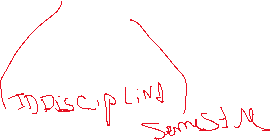 IDDiscipLiNA
SemeStR